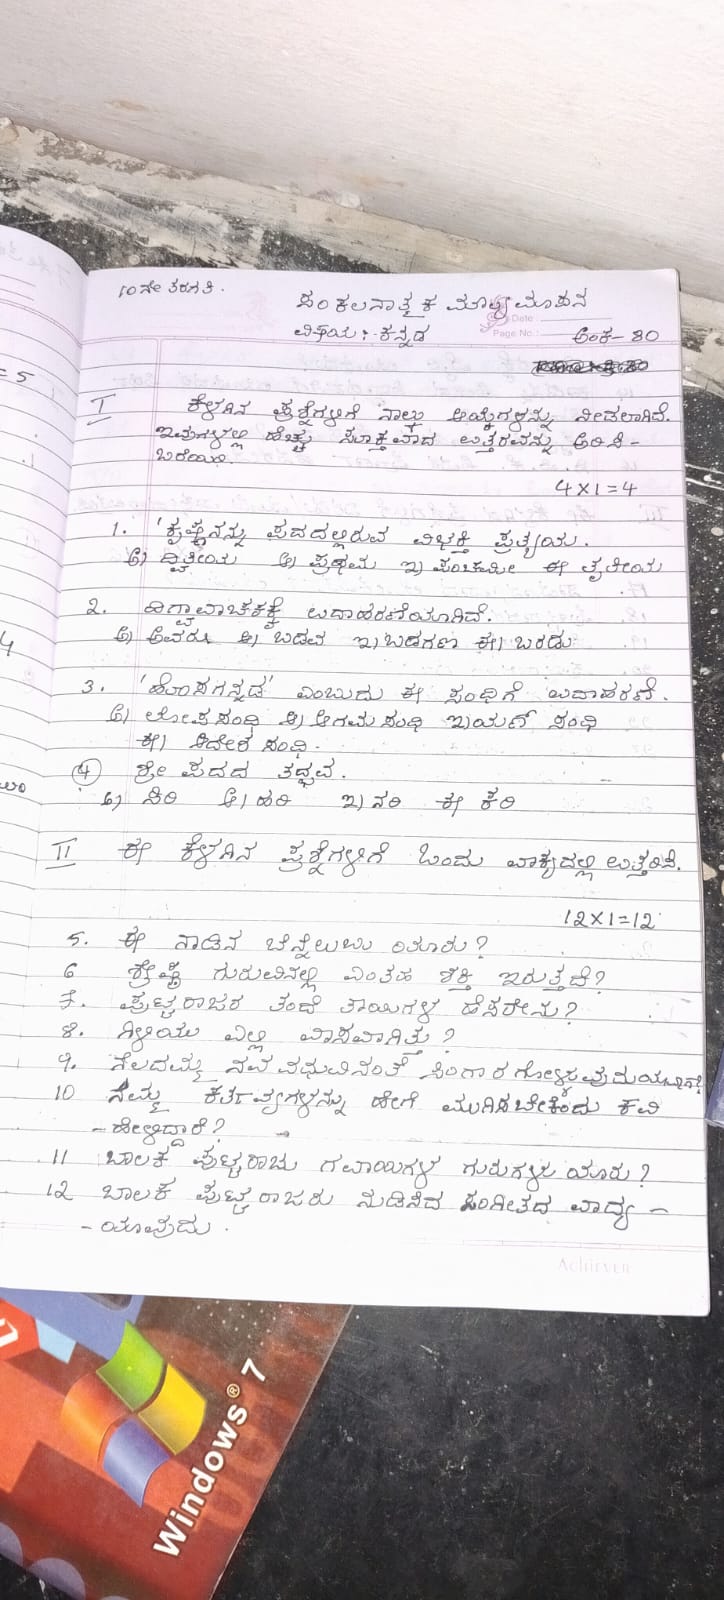 10ನೇ ತರಗತಿ.
ಸಂಕಲನಾತ್ಮಕ ಮೌಲ್ಯಮಾಪನ
Date :
ವಿಷಯ :- ಕನ್ನಡ
Page No.:
ಅಂಕ- 80
= 5
I ಕೆಳಗಿನ ಪ್ರಶ್ನೆಗಳಿಗೆ ನಾಲ್ಕು ಆಯ್ಕೆಗಳನ್ನು ನೀಡಲಾಗಿದೆ.
ಇವುಗಳಲ್ಲಿ ಹೆಚ್ಚು ಸೂಕ್ತವಾದ ಉತ್ತರವನ್ನು ಆರಿಸಿ-
ಬರೆಯಿರಿ.
4 X 1 = 4
1. 'ಕೃಷ್ಣನನ್ನು ಪದದಲ್ಲಿರುವ ವಿಭಕ್ತಿ ಪ್ರತ್ಯಯ.
ಅ) ದ್ವಿತೀಯ ಆ) ಪ್ರಥಮ ಇ) ಪಂಚಮೀ ಈ ತೃತೀಯ
2. ದಿಗ್ವಾಚಕಕ್ಕೆ ಉದಾಹರಣೆಯಾಗಿದೆ.
4
ಅ) ಅವರು ಆ) ಬಡವ ಇ) ಬಡಗಣ ಈ) ಬರಡು
3. 'ಹೊಸಗನ್ನಡ' ಎಂಬುದು ಈ ಸಂಧಿಗೆ ಉದಾಹರಣೆ.
ಅ) ಲೋಪಸಂಧಿ ಆ) ಆಗಮಸಂಧಿ ಇ)ಯಣ್ ಸಂಧಿ
ಈ) ಆದೇಶ ಸಂಧಿ.
4 ಶ್ರೀ ಪದದ ತದ್ಭವ.
ಅ) ಸಿರಿ ಆ) ಹರಿ ಇ) ನರಿ ಈ ಕರಿ
II ಈ ಕೆಳಗಿನ ಪ್ರಶ್ನೆಗಳಿಗೆ ಒಂದು ವಾಕ್ಯದಲ್ಲಿ ಉತ್ತರಿಸಿ.
12X1=12
5. ಈ ನಾಡಿನ ಬೆನ್ನೆಲುಬು ಯಾರು?
6 ಶ್ರೇಷ್ಠ ಗುರುವಿನಲ್ಲಿ ಎಂತಹ ಶಕ್ತಿ ಇರುತ್ತದೆ?
7. ಪುಟ್ಟರಾಜರ ತಂದೆ ತಾಯಿಗಳ ಹೆಸರೇನು?
8. ಗಿಳಿಯು ಎಲ್ಲಿ ವಾಸವಾಗಿತ್ತು?
9. ನೆಲದಮ್ಮ ನವವಧುವಿನಂತೆ ಸಿಂಗಾರಗೊಳ್ಳುವುದು
10 ನಮ್ಮ ಕರ್ತವ್ಯಗಳನ್ನು ಹೇಗೆ ಮುಗಿಸಬೇಕೆಂದು ಕವಿ
- ಹೇಳಿದ್ದಾರೆ?
11 ಬಾಲಕ ಪುಟ್ಟರಾಜು ಗವಾಯಿಗಳ ಗುರುಗಳು ಯಾರು?
12 ಬಾಲಕ ಪುಟ್ಟರಾಜರು ನುಡಿಸಿದ ಸಂಗೀತದ ವಾದ್ಯ -
- ಯಾವುದು.
Achiever
Windows® 7